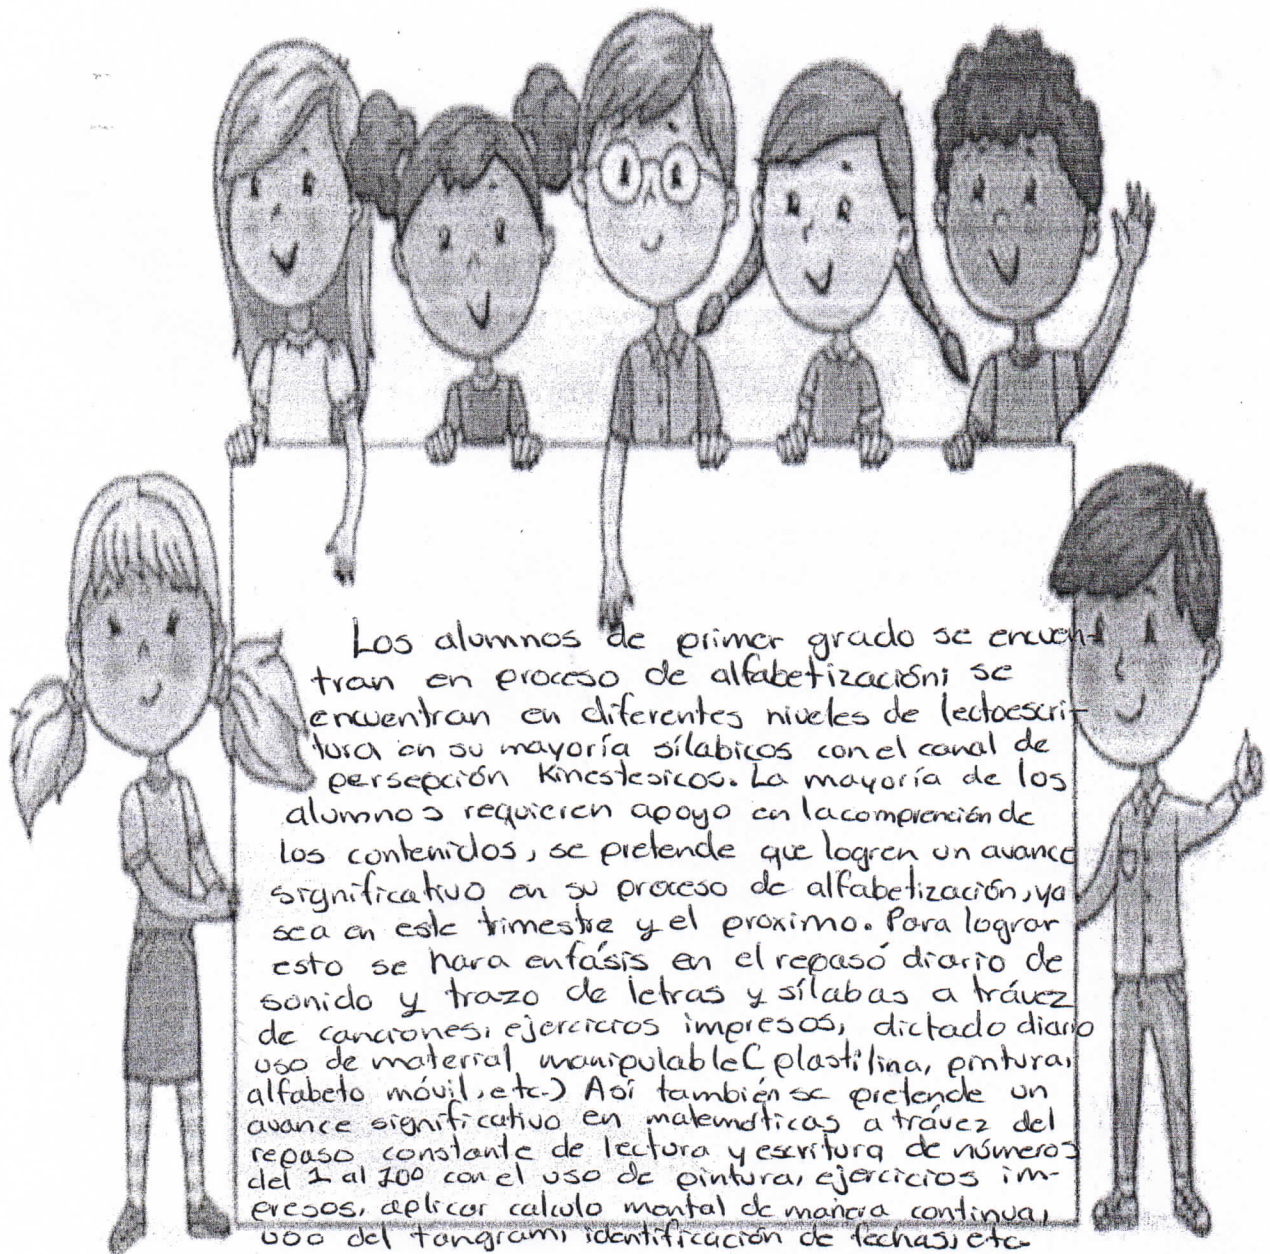 Los alumnos de primer grado se encuen-
tran en proceso de alfabetización; se
encuentran en diferentes niveles de lectoescri-
tura en su mayoría sílabicos con el canal de
persepción Kinestesicos. La mayoría de los
alumnos requieren apoyo en la comprención de
los contenidos, se pretende que logren un avance
significativo en su proceso de alfabetización, ya
sea en este trimestre y el proximo. Para lograr
esto se hara enfásis en el repasó diario de
sonido y trazo de letras y sílabas a trávez
de canciones, ejercicios impresos, dictado diario
uso de material manipulable (plastilina, pintura,
alfabeto móvil, etc.) Así también se pretende un
avance significativo en matemáticas a trávez del
repaso constante de lectura y escritura de números
del 1 al 100 con el uso de pintura, ejercicios im-
presos, aplicar calculo mental de manera continua,
uso del tangram, identificación de fechas, etc.